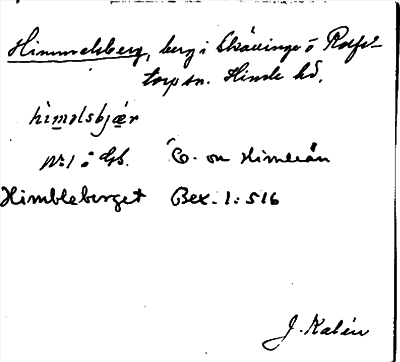 Himmelsberg, berg i Skävinge ö Rolfs-
torp sn. Himle hd.
hìməlsbjær
nr 1 i Gb. Ö. om Himleån
Himbleberget Bex. 1:516
J. Kalén